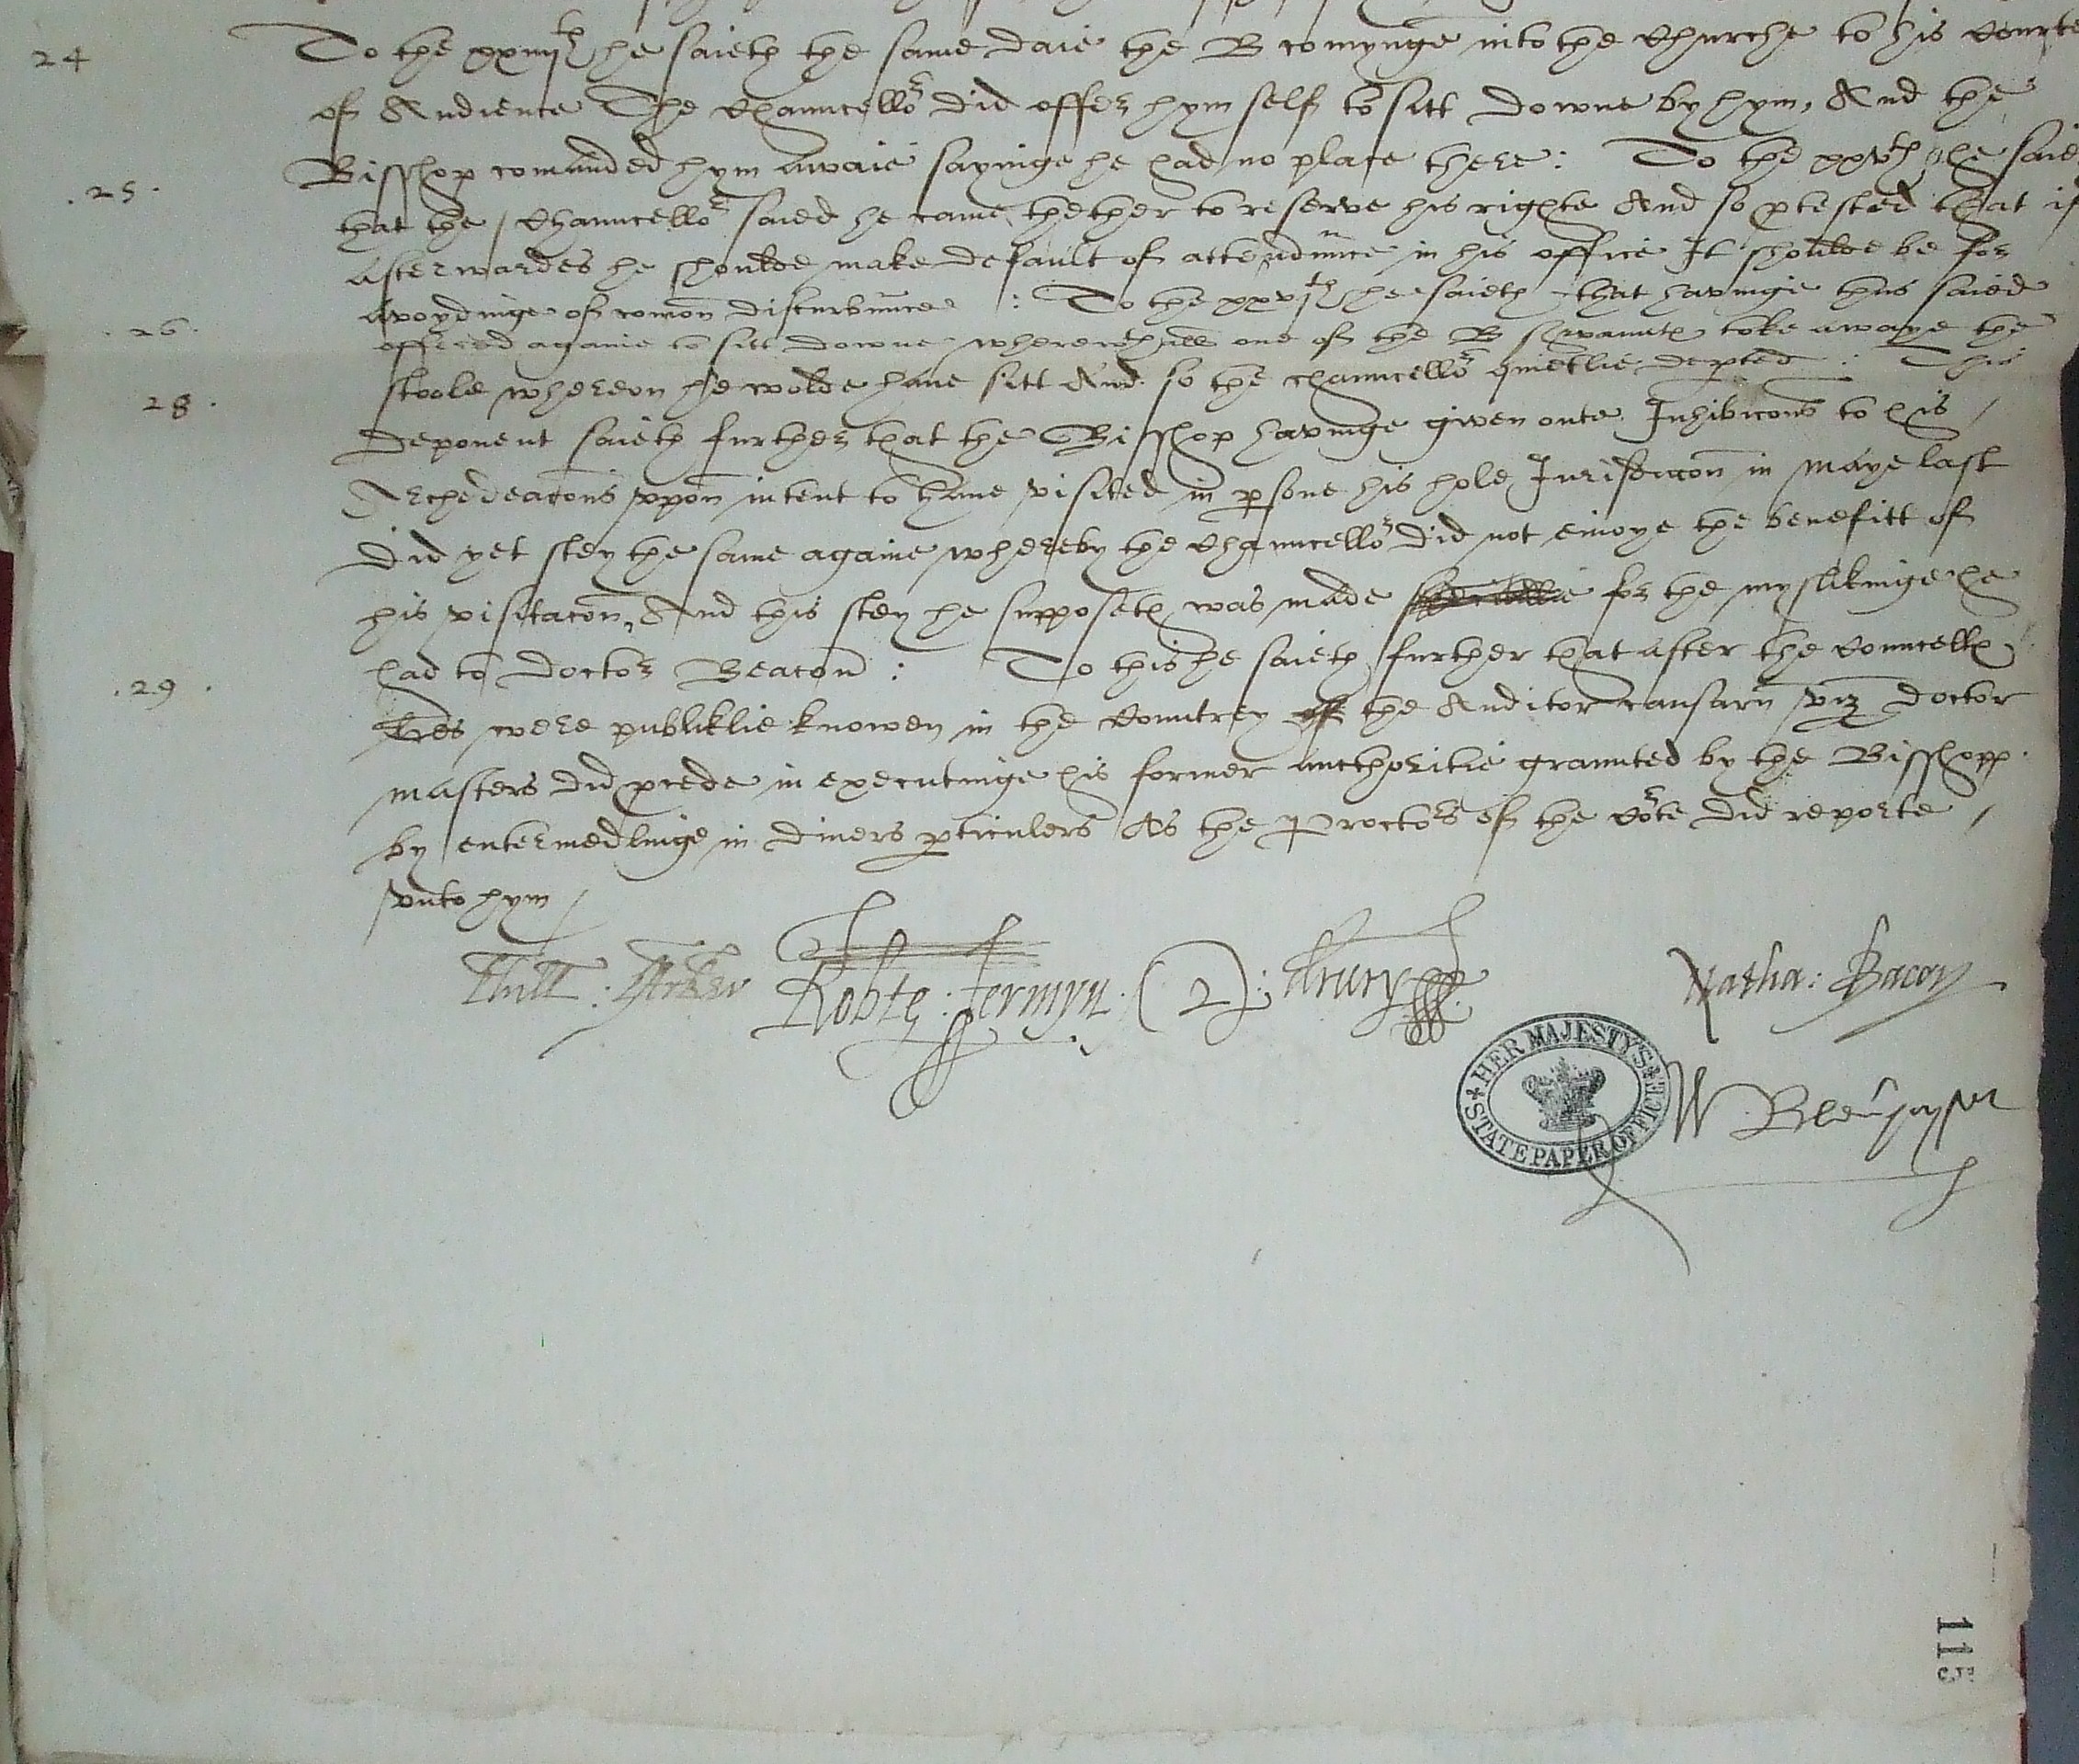 24 To the xxiiijth he saieth the same daie the B comynge into the Churche to his Courte
of Audience The Chauncellor did offer hym self to sitt downe by hym, And the
Bisshop comanded hym awaie sayinge he had no place there : To the xxvth he saie
.25. that the Chauncellor saied he came thether to reserve his righte And so ptested that if
afterwardes he shoulde make default of attendunce in his office It shoulde be for
avoydinge of comon disturbunce : To the xxvjth he saieth that havinge thus saied
.26. offered againe to sitt downe wherewthall one of the B servauntes toke awaye the
stoole whereon he wolde have sitt And so the chauncellor quietlie depted : This
28. deponent saieth further that the Bisshop havinge given oute Inhibicons to his
Archedeacons vppon intent to have visited in psone his hole Jurisdiccon in maye last
did yet stey the same againe whereby the Chauncellor did not enioye the benefitt of
his visitacon, And this stey he supposeth was made for the myslikinge he
had to doctor Beacon : To this he saieth further that after the Councelles
.29. lres were publiklie knowen in the Countrey the Auditor causarū viz doctor
masters did pcede in executinge his former aucthoritie graunted by the Bisshopp
by entermedlinge in divers pticulers As the Proctors of the Corte did reporte
vnto hym
Robte : Jermyn. Drury Natha : Bacon
HER MAJESTY'S STATE PAPER OFFICE
W Blenhaysset
115